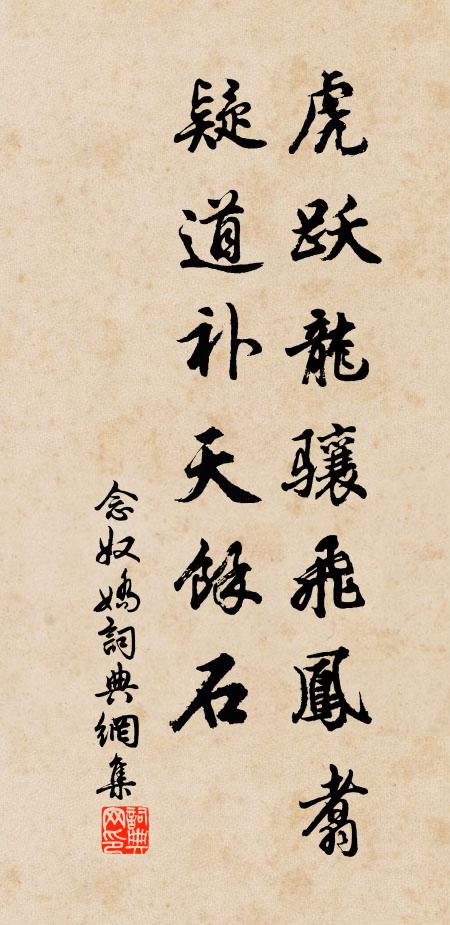 虎跃龍骧飛鳳翥
疑道补天餘石
念奴嬌詞典網集
詞典网印